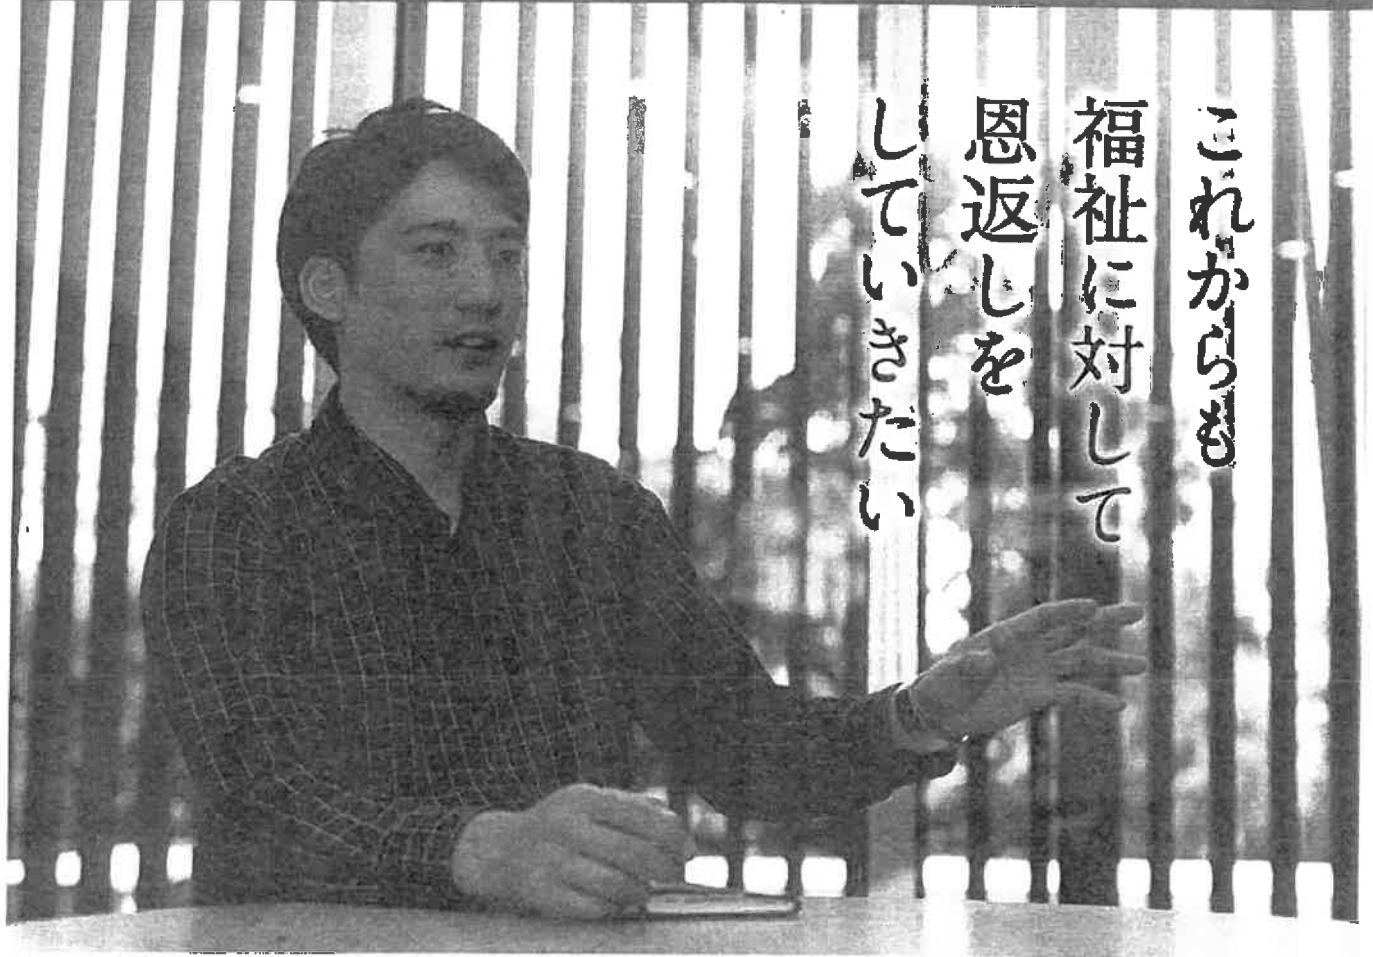 これからも
福祉に対して
恩返しを
していきたい